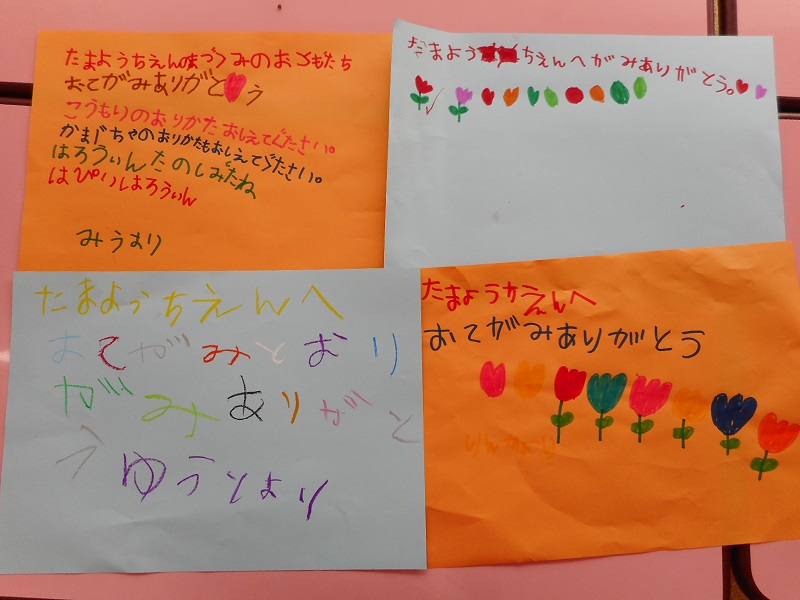 たまようちえんのまつぐみのおともだち
おてがみありがとう
こうもりのおりかた おしえてください。
かぼちゃのおりかたもおしえてください。
はろうぃん たのしみだね
はぴいはろうぃん
みうより
たまようちえんへがみありがとう。
たまようちえんへ
おてがみとおり
がみありがと
う ゆうとより
たまようちえんへ
おてがみありがとう
りんかより